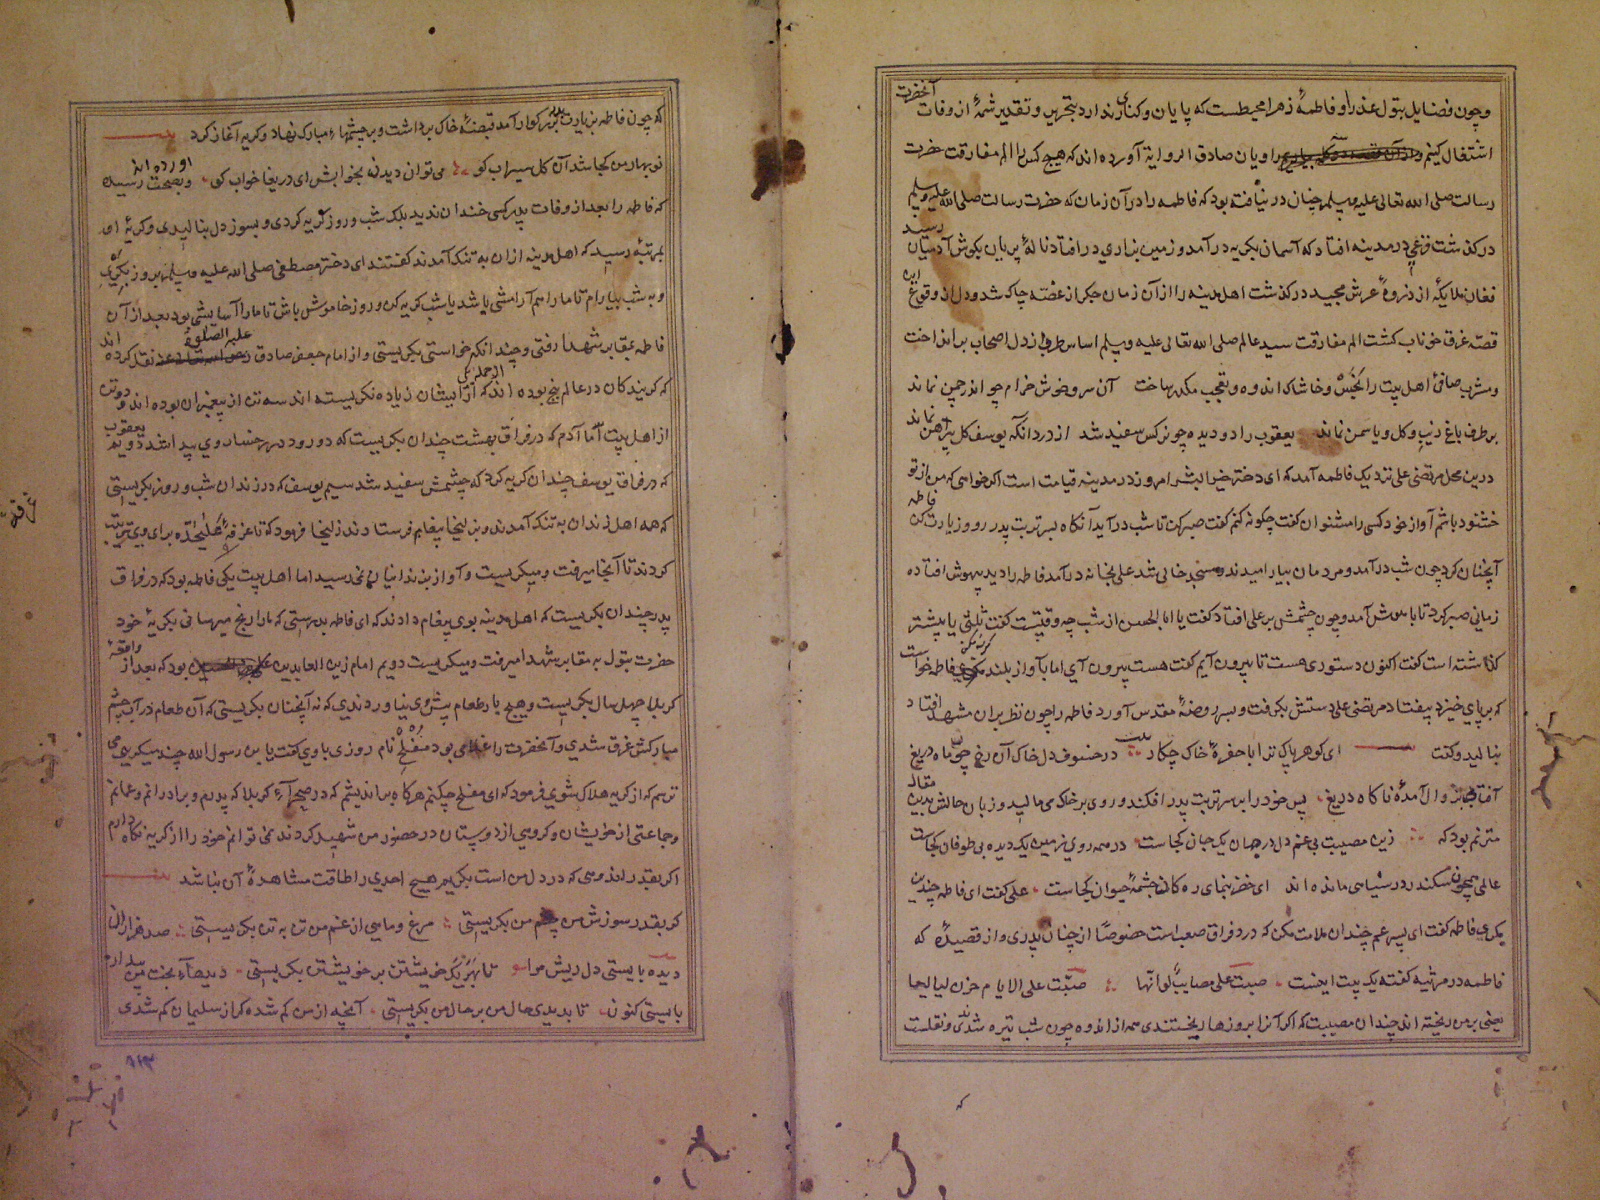 وچون فضایل بتول عذرا و فاطمهٔ زهرا محیطست که پایان و کناری ندارد بتحریر و تقدیر شمهٔ از وفات آنحضرت
اشتغال کنیم راویان صادق الروایة آورده اند که هیچ کس را الم مفارقت حضرت
رسالت صلی الله تعالی علیه وسلم چنان در نیافته بود که فاطمه را در آن زمان که حضرت رسالت صلی الله علیه وسلم
درکذشت فزعی در مدینه افتاد که آسمان بکریه درآمد و زمین بزاری در افتاد نالهٔ پریان بکوش آدمیان رسید
فغان ملایکه از ذروهٔ عرش مجید درکذشت اهل مدینه را از آن زمان جکر از غصه چاک شد و دل از وقوع این
قصه غرق خوناب کشت الم مفارقت سید عالم صلی الله تعالی علیه وسلم اساس طرب از دل اصحاب برانداخت
ومشرب صافی اهل بیت را بخس وخاشاک اندوه و تعجب مکدر ساخت آن سرو خوش خرام چو اندر چمن نماند
برطرف باغ زیب و کل و یاسمن نماند یعقوب را دو دیده چو نرکس سفید شد از درد آنکه یوسف کل پیرهن نماند
درین محل مرتضی علی نزدیک فاطمه آمد که ای دختر خیر البشر امروز در مدینه قیامت است اکر خواهی که من از تو
خشنود باشم آواز خود کسی را مشنوان کفت چکونه کنم کفت صبر کن تا شب درآید آنکاه بسر تربت پدر رو و زیارت کن فاطمه
آنچنان کرد چون شب درآمد و مردمان بیارامیدند و مسجد خالی شد علی بخانه درآمد فاطمه را دید بیهوش افتاده
زمانی صبر کرد تا باهوش آمد وچون چشمش بر علی افتاد کفت یا ابا الحسن از شب چه وقتست کفت ثلثی یا بیشتر
کذاشته است کفت اکنون دستوری هست تا بیرون آیم کفت هست بیرون آی اما بآواز بلند کریه مکن فاطمه خواست
که بر پای خیزد بیفتاد مرتضی علی دستش بکرفت و بسر روضهٔ مقدس آورد فاطمه را چون نظر بران مشهد افتاد
بنالید وکفت ای کوهر پاک ترا با حفرهٔ خاک چکار در خسوف دل خاک آن رخ چون ماه دریغ
زوال آمدهٔ ناکاه دریغ پس خود را بر سر تربت پدر افکند و روی بر خاک می مالید و زبان حالش بدین مقال
مترنم بود که زین مصیبت بی غم دل در جهان یک جان کجاست در همه روی زمین یک دیده بی طوفان کجاست
عالمی همچون سکندر در سیاهی مانده اند ای خضر بنمای ره کان چشمهٔ حیوان کجاست علی کفت ای فاطمه چندین
مکری فاطمه کفت ای پسر عم چندان ملامت مکن که درد فراق صعب است خصوصا از چنان پدری و از قصیدهٔ که
فاطمه در مرثیه کفته یک بیت اینست صبت علی مصایب لو انها صبّت علی الایام صرن لیالیا
یعنی بر من ریخته اند چندان مصیبت که اکر آنرا بروزها ریختندی همه از اندوه چون شب تیره شدندی ونقلست
که
که چون فاطمه بزیارت پدر بزرکوار آمد قبضهٔ خاک برداشت و بر چشمهاء مبارک نهاد وکریه آغاز کرد
نوبهار من کجا شد آن کل سیراب کو می توان دیدن بخوابش ای دریغا خواب کو وبصحت رسیده
اورده اند
که فاطمه را بعد از وفات پدر کسی خندان ندید بلک شب و روز کریه کردی و بسوز دل بنالیدی وکریهٔ او
بمرتبهٔ رسید که اهل مدینه از ان به تنک آمدند کفتند ای دختر مصطفی صلی الله علیه وسلم بروز بکریی
و به شب بیارام تا ما را هم آرامشی باشد یا شب کریه کن و روز خاموش باش تا ما را آسایشی بود بعد از آن
فاطمه بمقابر شهدا رفتی وچندانکه خواستی بکریستی و از امام جعفر صادق علیه الصلوة نقل کرده اند
که کریندکان در عالم پنج بوده اند که از ایشان زیاده نکریسته اند سه تن از پیغمبران بوده اند و دو تن
از اهل بیت اما آدم که در فراق بهشت چندان بکریست که دو رود در رخسار وی پیدا شد دویم یعقوب
که در فراق یوسف چندان کریه کرد که چشمش سفید شد سیم یوسف که در زندان شب و روز بکریستی
که همه اهل زندان به تنک آمدند و بزلیخا پیغام فرستادند زلیخا فرمود که تا غرفهٔ علیحده برای وی ترتیب
کردند تا آنجا میرفت و میکریست و آواز بزندانیان نمی رسید اما اهل بیت یکی فاطمه بود که در فراق
پدر چندان بکریست که اهل مدینه بوی پیغام دادند که ای فاطمه بدرستی که ما را رنج میرسانی بکریهٔ خود
حضرت بتول به مقابر شهدا میرفت و میکریست دویم امام زین العابدین بود که بعد از واقعهٔ
کربلا چهل سال بکریست و هیچ بار طعام پیش وی نیاوردندی که نه آنچنان بکریستی که آن طعام در آب چشم
مبارکش غرق شدی و آنحضرت را غلامی بود مفلح نام روزی با وی کفت یا بن رسول الله چند میکریی می
ترسم که از کریه هلاک شوی فرمود که ای مفلح چکنم هر کاه بر اندیشم که در صحرآء کربلا که پدرم و برادرانم و عمانم
وجماعتی از خویشان و کروهی از دوستان در حضور من شهید کردند نمی توانم خود را از کریه نکاه دارم
اکر بقدر اندوهی که در دل من است بکریم هیچ احدی را طاقت مشاهدهٔ آن نباشد
کر بقدر سوزش من چشم من بکریستی مرغ و ماهی از غم من تن به تن بکریستی صد هزاران
دیده بایستی دل ریش مرا تا بهر یک خویشتن بر خویشتن بکریستی دیدهاء بخت من بیدار
بایستی کنون تا بدیدی حال من بر حال من بکریستی آنچه از من کم شده کر از سلیمان کم شدی